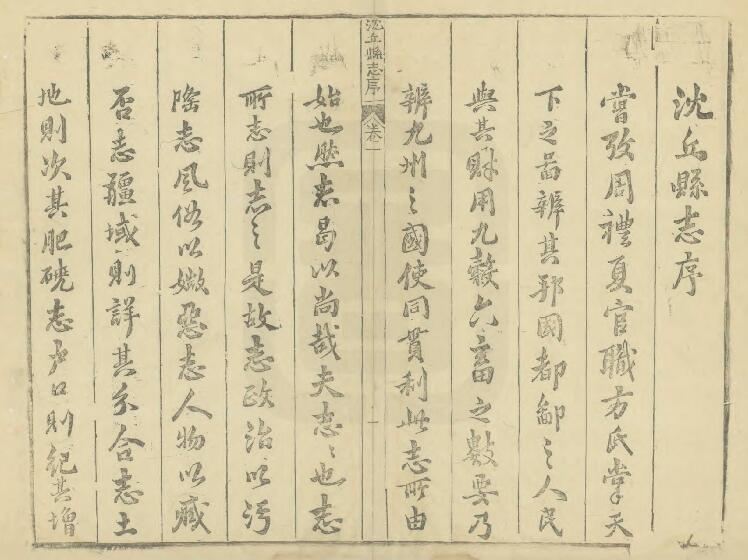 沈丘縣志序
嘗攷周禮夏官職方氏掌天
下之啚辨其邦國都鄙之人民
與其財用九穀六畜之數要乃
辨九州之國使同貫利此志所由
沈丘縣志序 卷一 一
始也然志曷以尚哉夫志〻也志
所志則志之是故志政治以汚
隆志風俗以媺惡志人物以臧
否志疆域則詳其分合志土
地則次其肥磽志戶口則紀其增